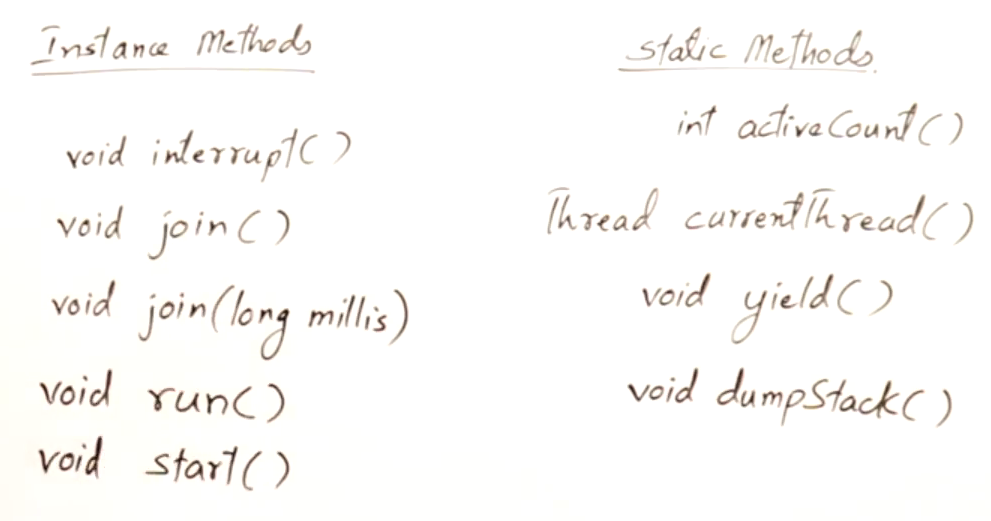 Instance Methods
void interrupt()
void join()
void join(long millis)
void run()
void start()
Static Methods.
int activeCount()
Thread currentThread()
void yield()
void dumpStack()